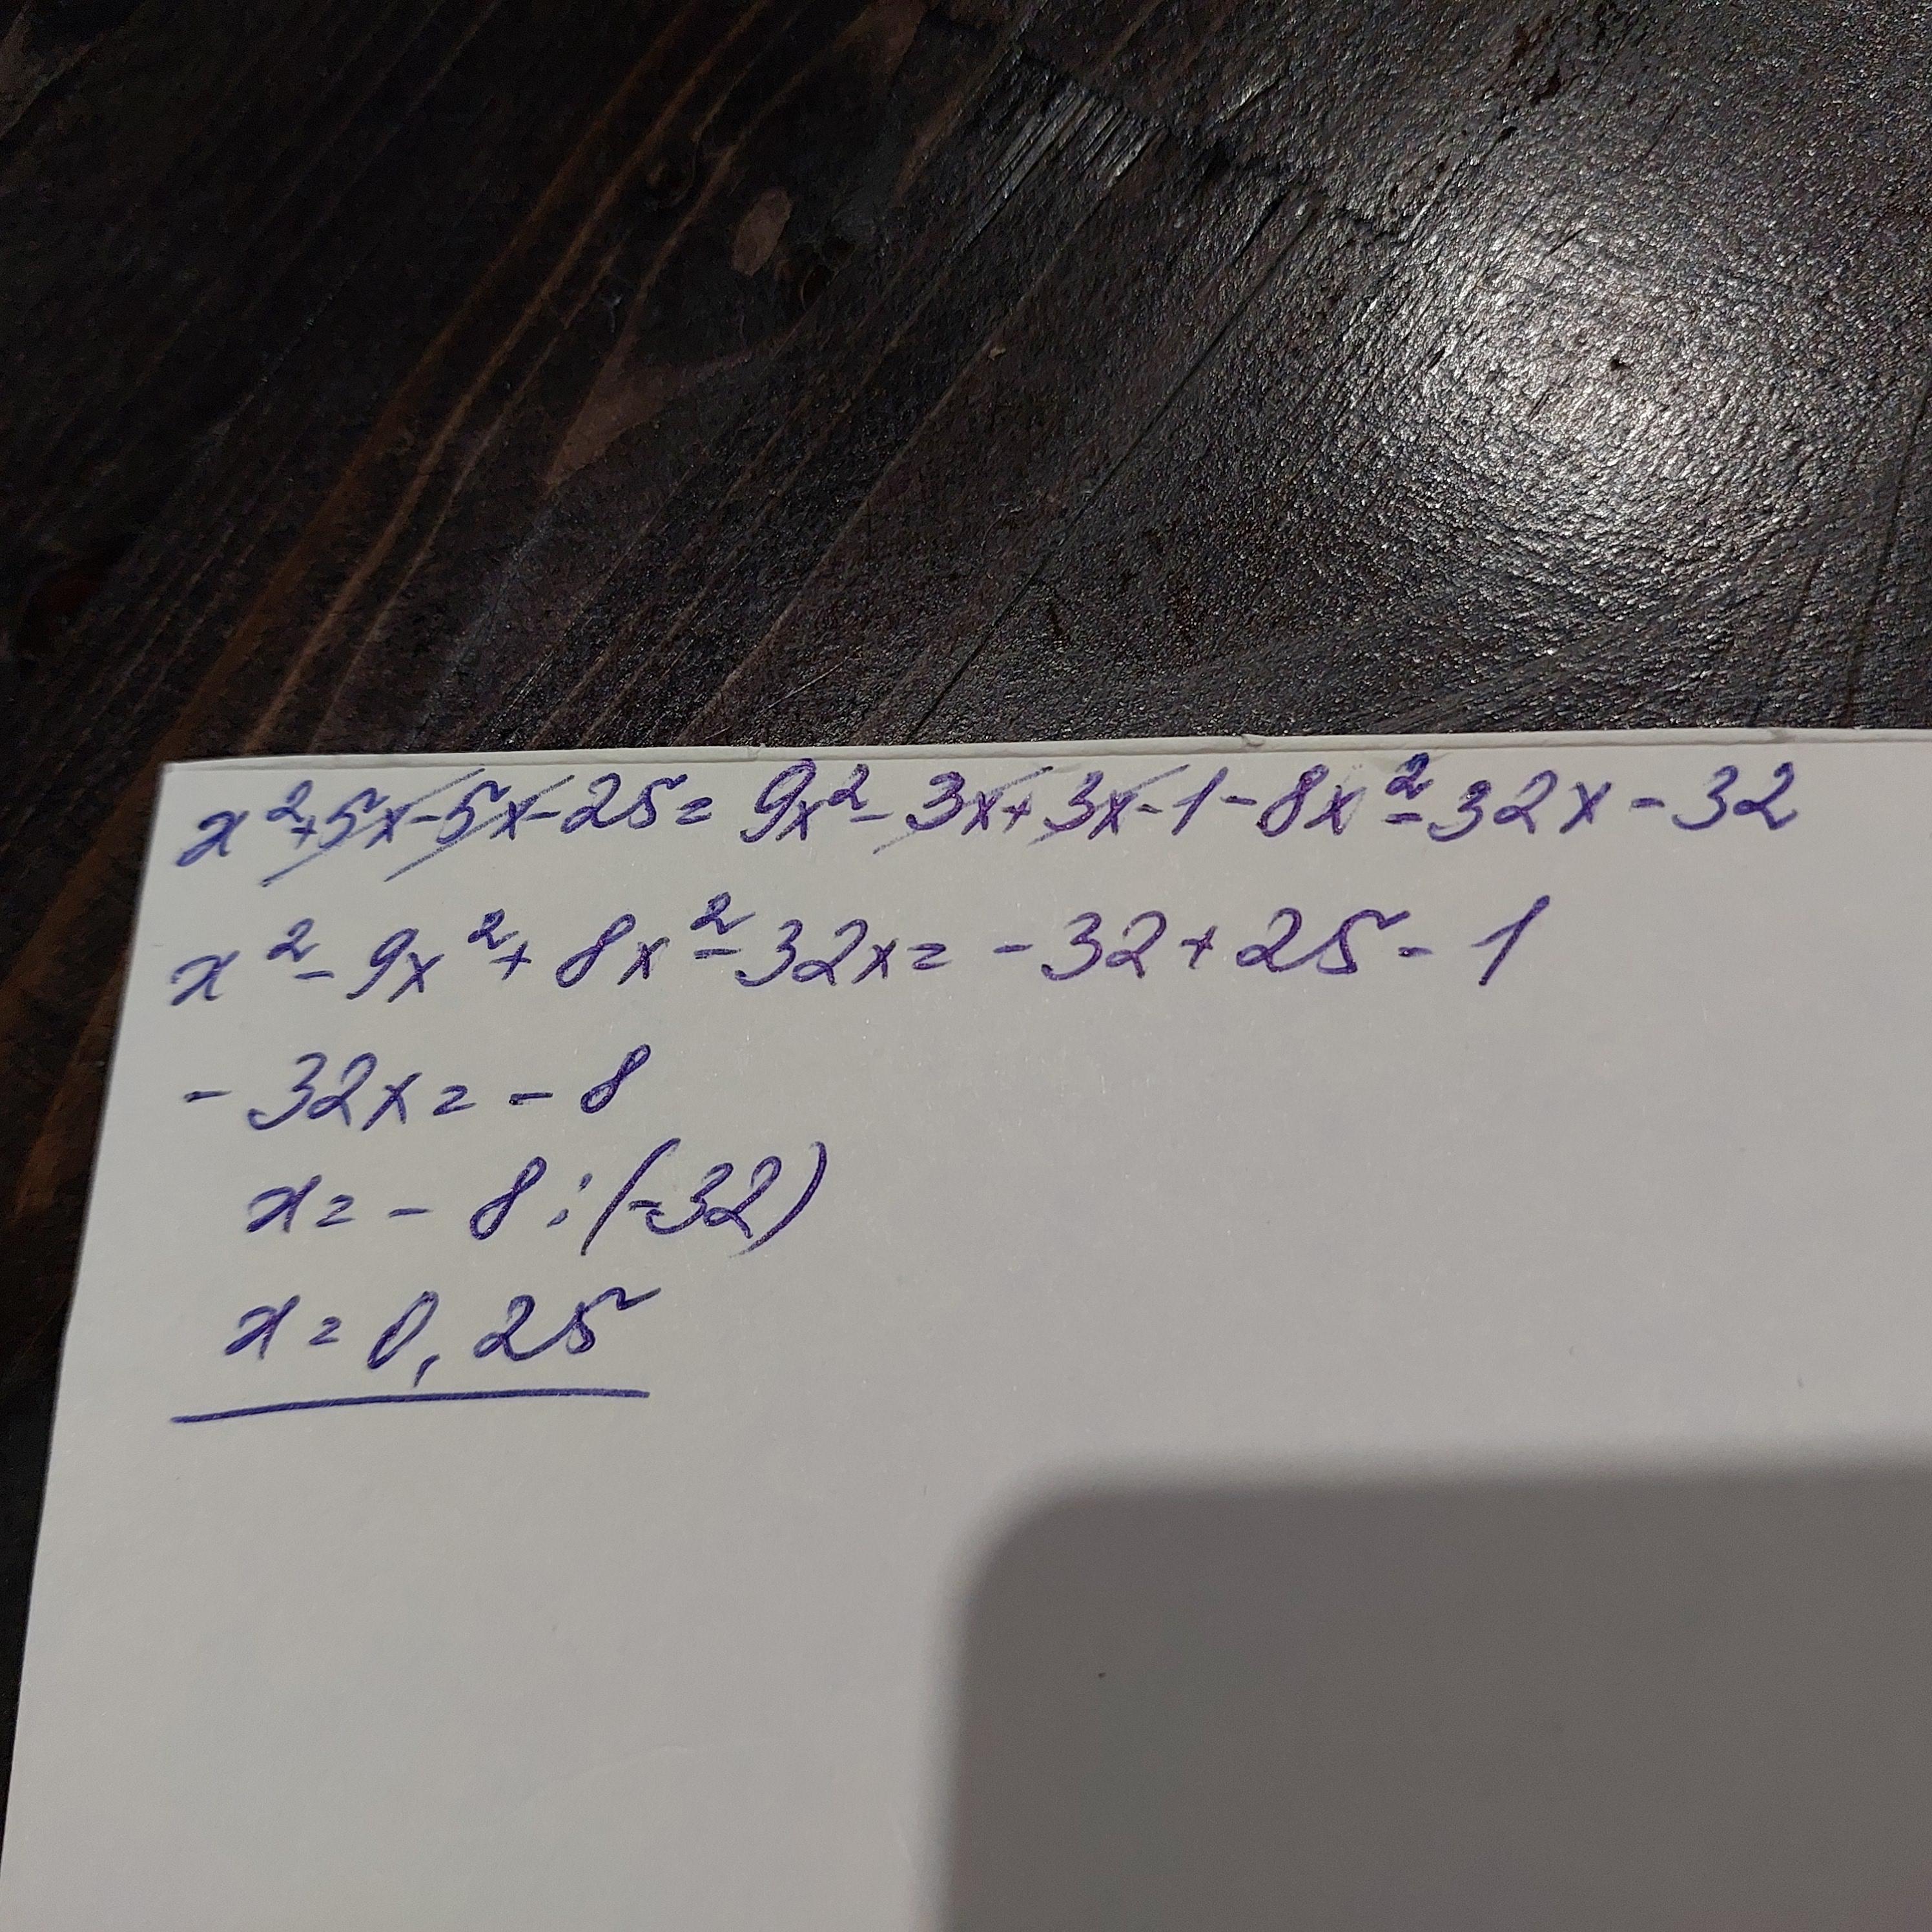 x²+5x-5x-25=9x²-3x+3x-1-8x²-32x-32
x²-9x²+8x²-32x=-32+25-1
-32x=-8
x=-8:(-32)
x=0,25